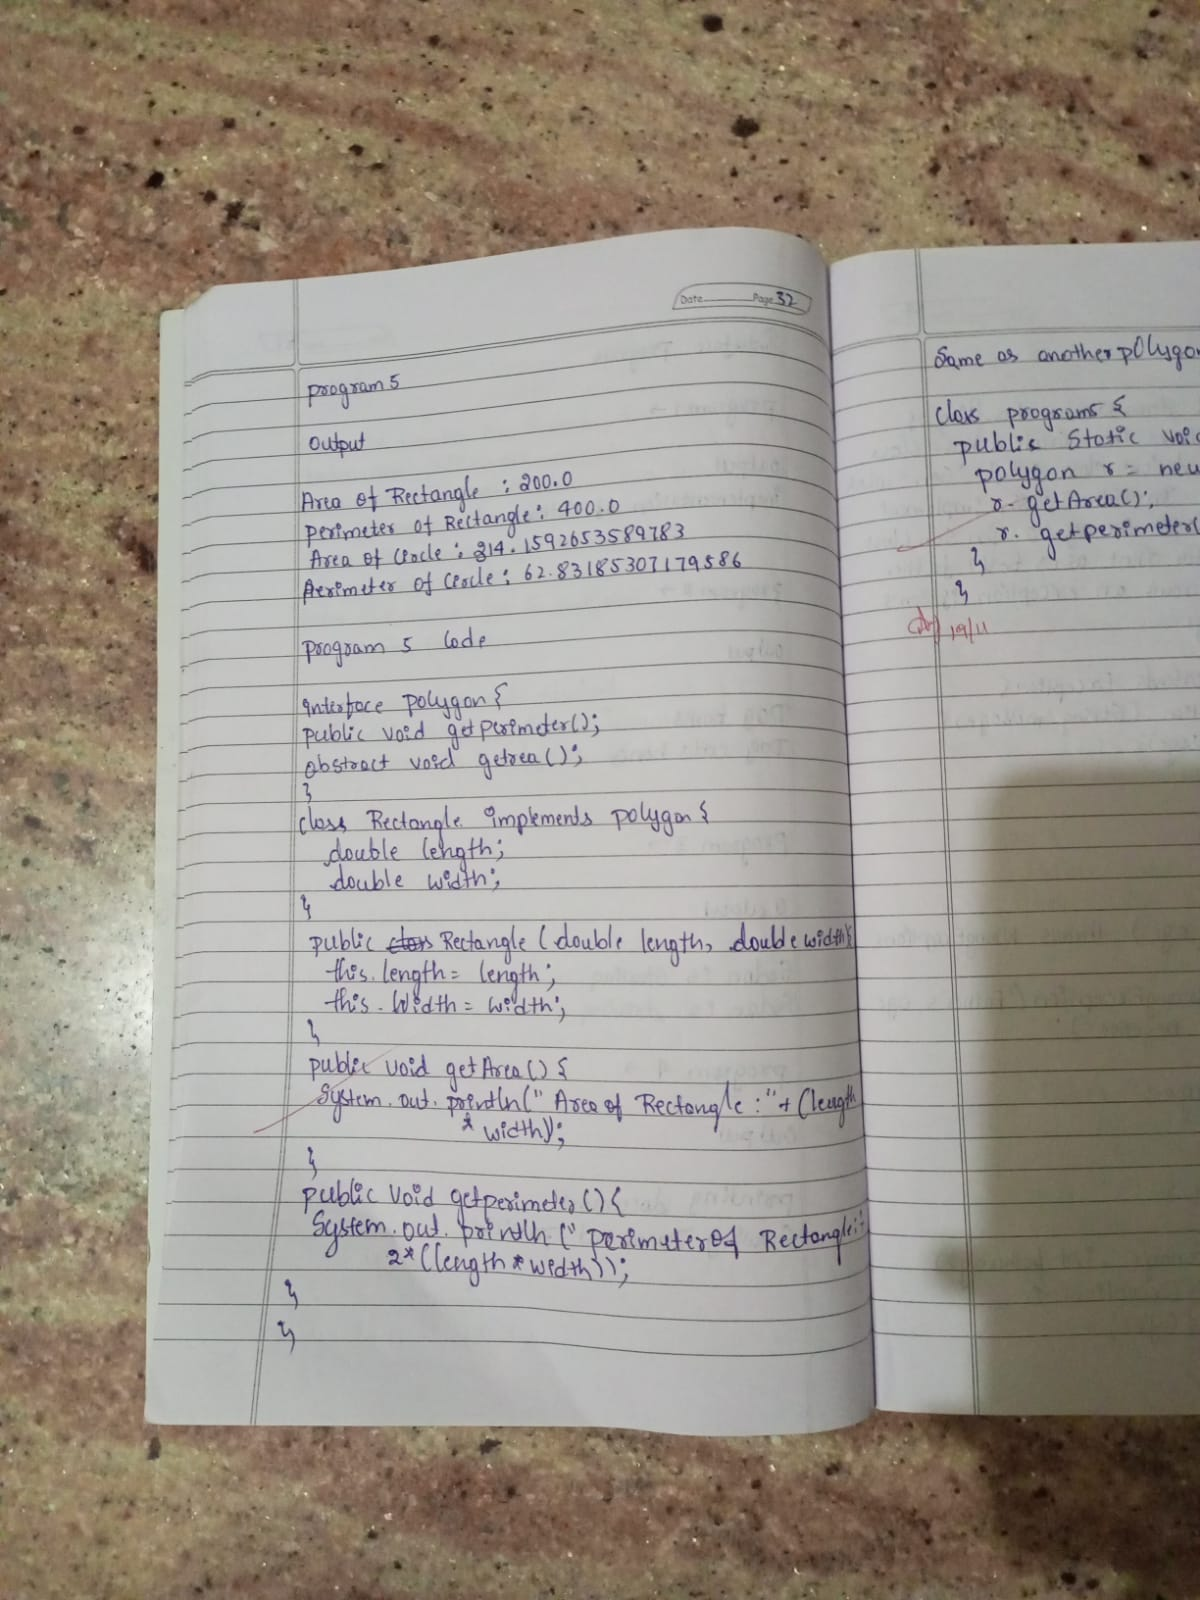 Date Page 32
program 5
output
Area of Rectangle : 200.0
perimeter of Rectangle: 400.0
Area of Circle : 314.1592653589783
Perimeter of Circle : 62.83185307179586
program 5 Code
interface polygon {
public void getperimeter();
abstract void getrea();
}
class Rectangle implements polygon {
double length;
double width;
}
public Rectangle (double length, double width){
this.length = length;
this.Width = width;
}
public void getArea() {
System.out.println("Area of Rectangle :"+ (length
* width);
}
public void getperimeter () {
System.out.println (" perimeter of Rectangle:"+
2*(length * width));
}
}
Same as another polygon
class program5 {
public Static void
polygon r = new
r. getArea();
r. getperimeter(
}
}
19/11